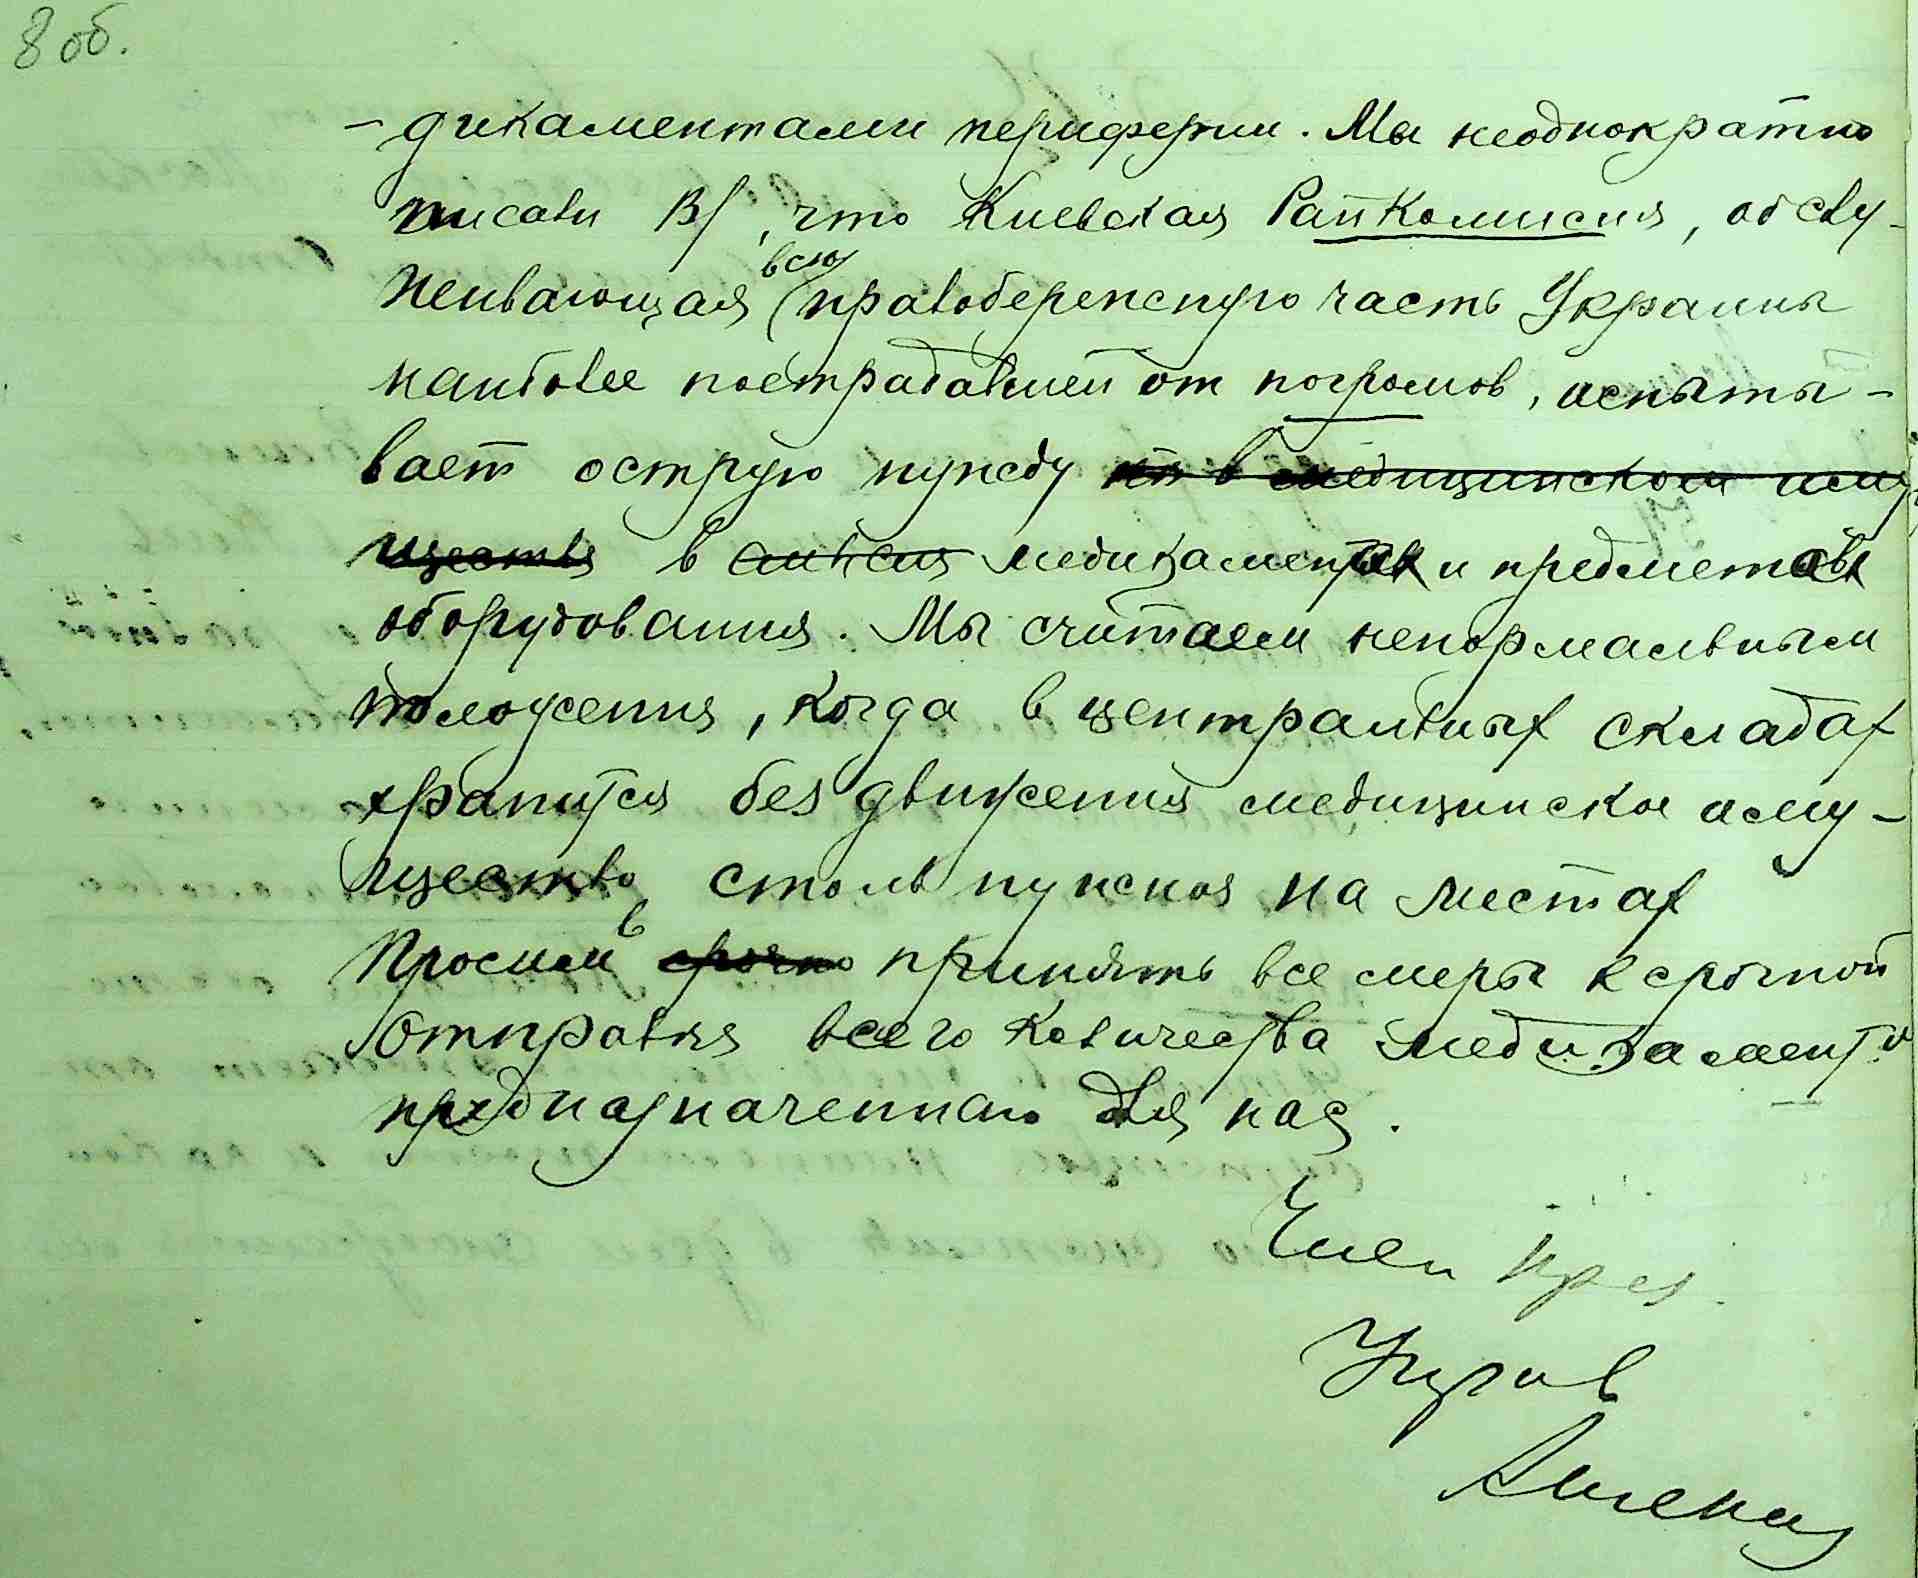 8 об.
-дикаментами периферии. Мы неоднократно
писали В/, что Киевская РайКомиссия, обслу-
живающая всю правобережную часть Украины
наиболее пострадавшей от погромов, испыты-
вает острую нужду в медицинском иму
ществе в медикаментах и предметах
оборудования. Мы считаем ненормальным
положения, когда в центральных складах
хранится без движения медицинское иму-
щество, столь нужное на местах
Просим В срочно принять все меры к срочной
отправке всего количества медикаменто
предназначенного для нас.
Член през.
Управ